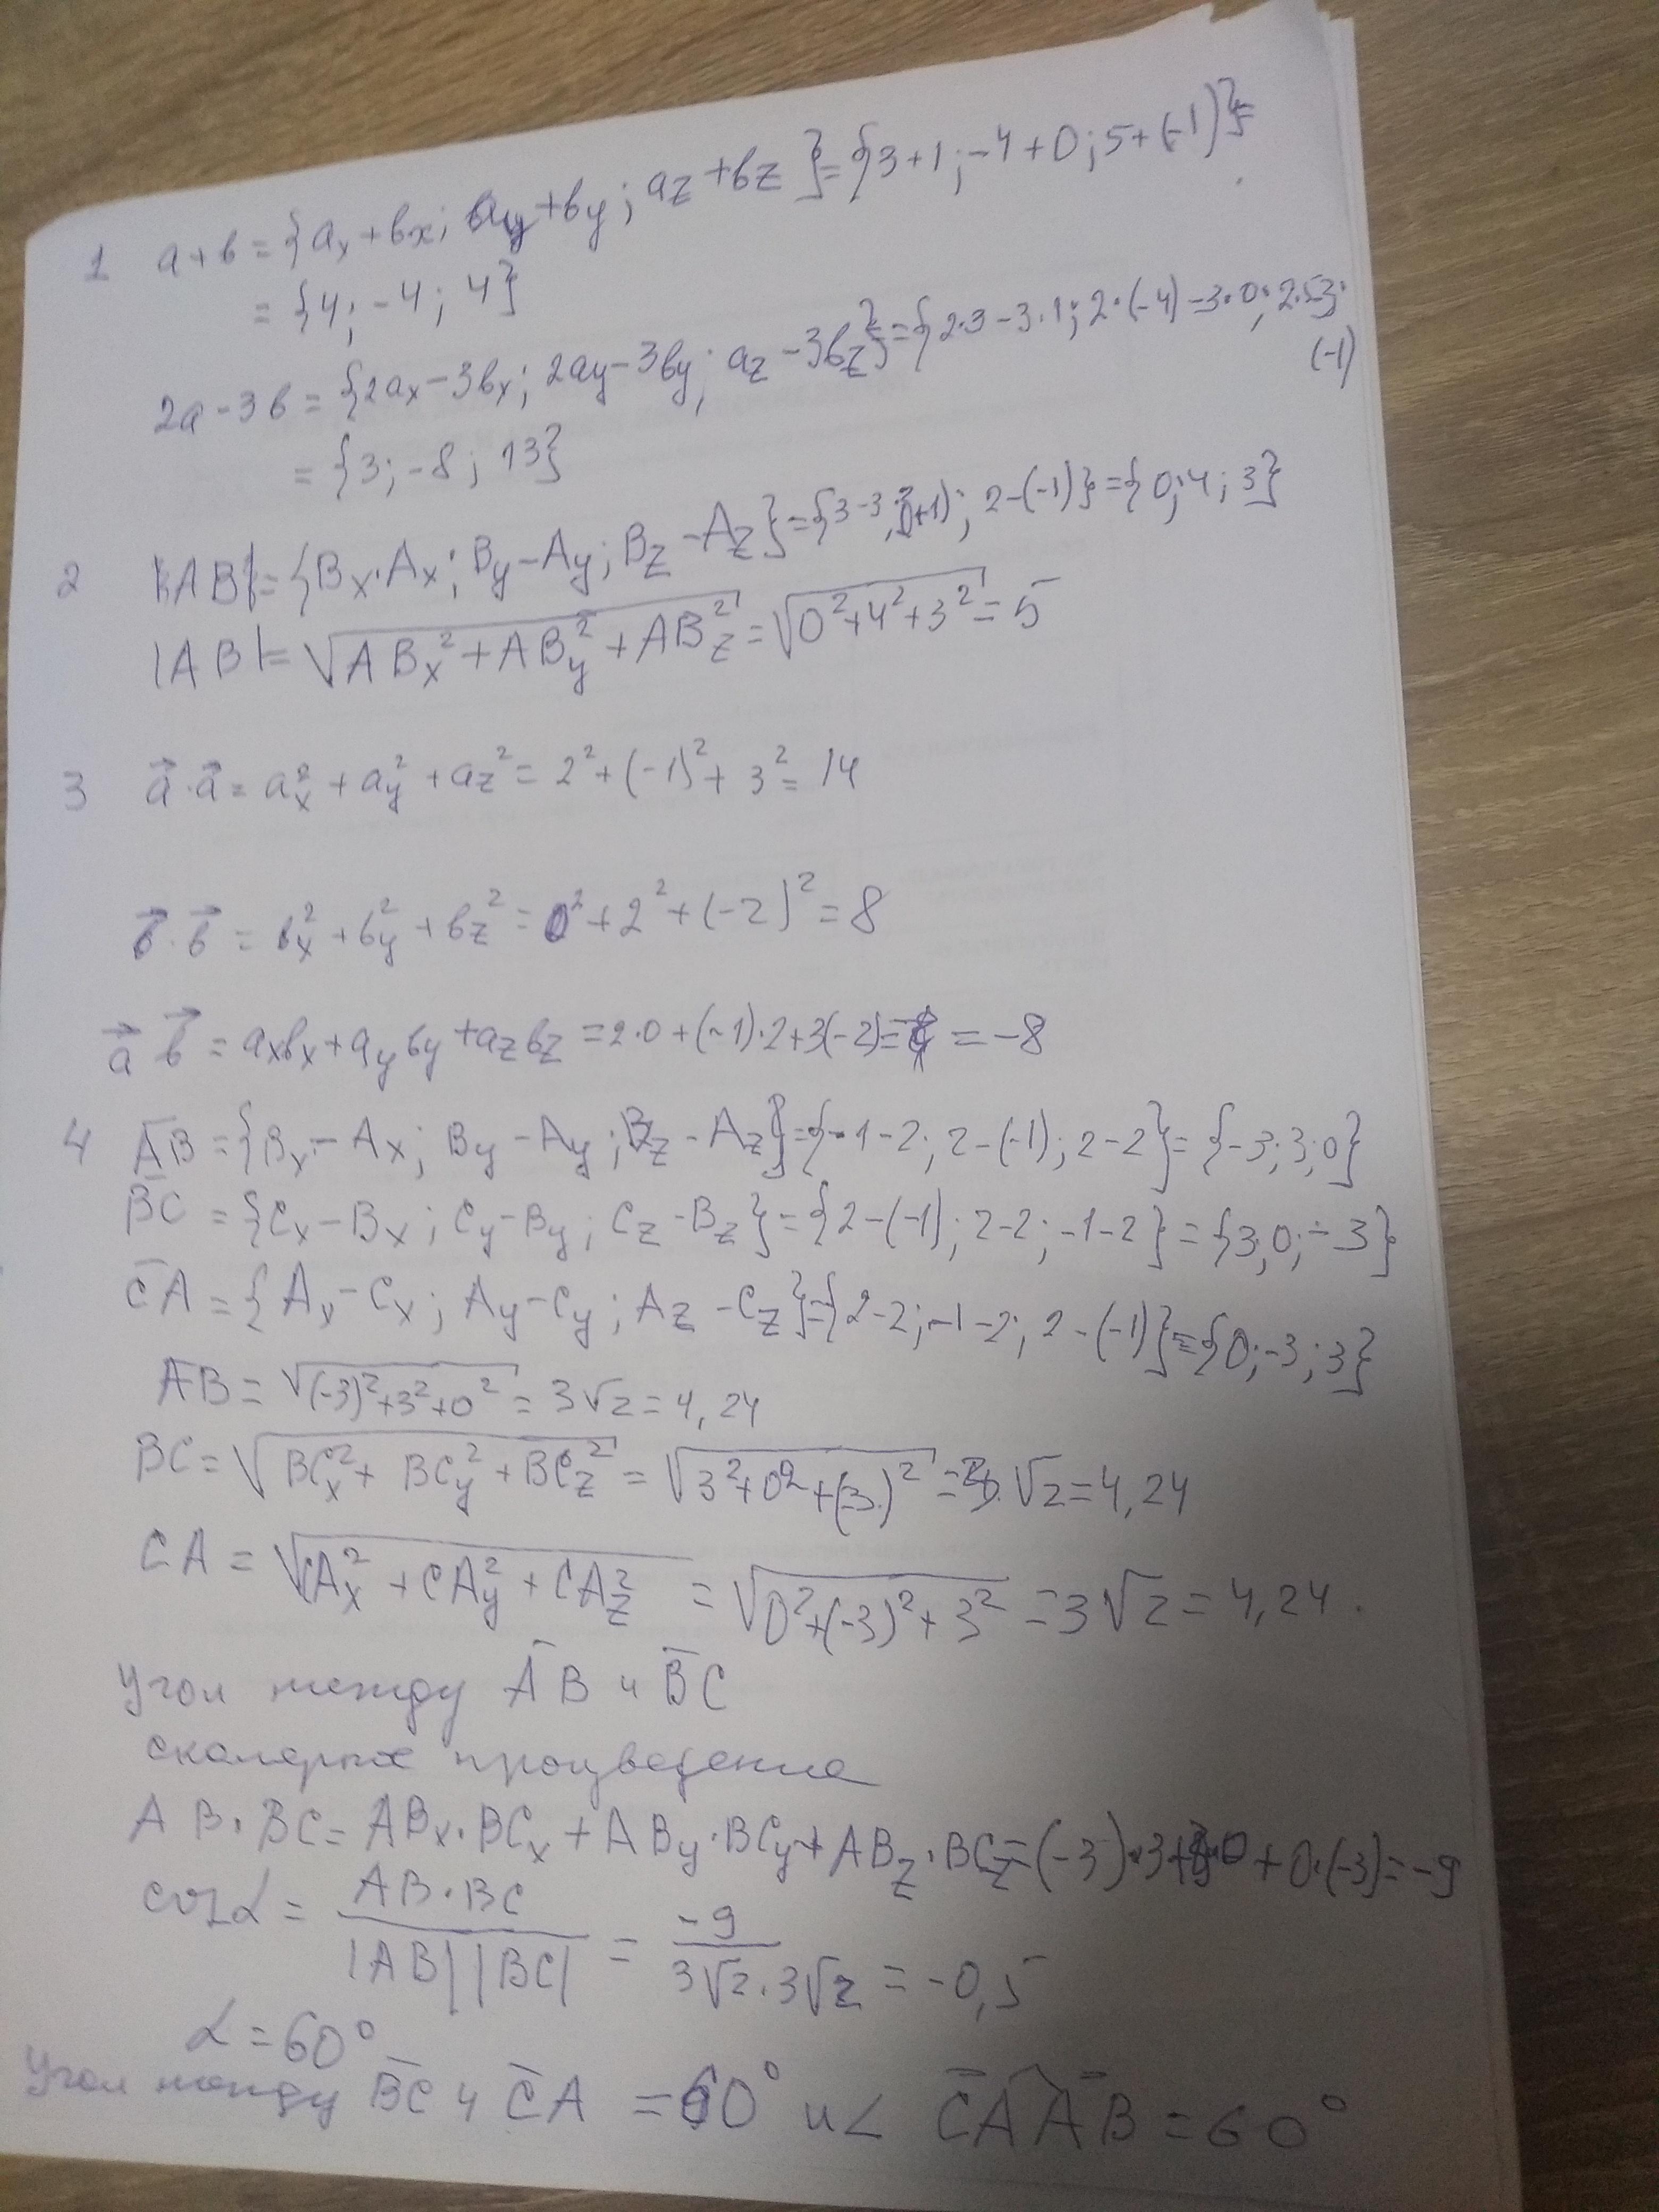 1 a+b = {ax+bx; ay+by; az+bz} = {3+1; -4+0; 5+(-1)} =
= {4; -4; 4}
2a-3b = {2ax-3bx; 2ay-3by; az-3bz} = {2·3-3·1; 2·(-4)-3·0; 2·5-3·
(-1)
= {3; -8; 13}
2 |AB| = {Bx·Ax; By-Ay; Bz-Az} = {3-3; 3+1); 2-(-1)} = {0; 4; 3}
|AB| = √ABx²+ABy²+ABz² = √0²+4²+3² = 5
3 a⃗·a⃗ = ax²+ay²+az² = 2²+(-1)²+3² = 14
в⃗·в⃗ = вx²+вy²+вz² = 0²+2²+(-2)² = 8
a⃗ в⃗ = axвx+ayвy+azвz = 2·0+(-1)·2+3(-2) = = -8
4 AB = {Bx-Ax; By-Ay; Bz-Az} = {-1-2; 2-(-1); 2-2} = {-3; 3; 0}
BC = {Cx-Bx; Cy-By; Cz-Bz} = {2-(-1); 2-2; -1-2} = {3; 0; -3}
CA = {Ax-Cx; Ay-Cy; Az-Cz} = {2-2; -1-2; 2-(-1)} = {0; -3; 3}
AB = √(-3)²+3²+0² = 3√2 = 4,24
BC = √BCx²+BCy²+BCz² = √3²+0²+(-3)² = 3√2 = 4,24
CA = √CAx²+CAy²+CAz² = √0²+(-3)²+3² = 3√2 = 4,24.
Угол между AB и BC
скалярное произведение
AB·BC = ABx·BCx+ABy·BCy+ABz·BCz = (-3)·3+3·0+0·(-3) = -9
cosα = AB·BC / |AB||BC| = -9 / 3√2·3√2 = -0,5
α = 60°
Угол между BC и CA = 60° и ∠ CA AB = 60°